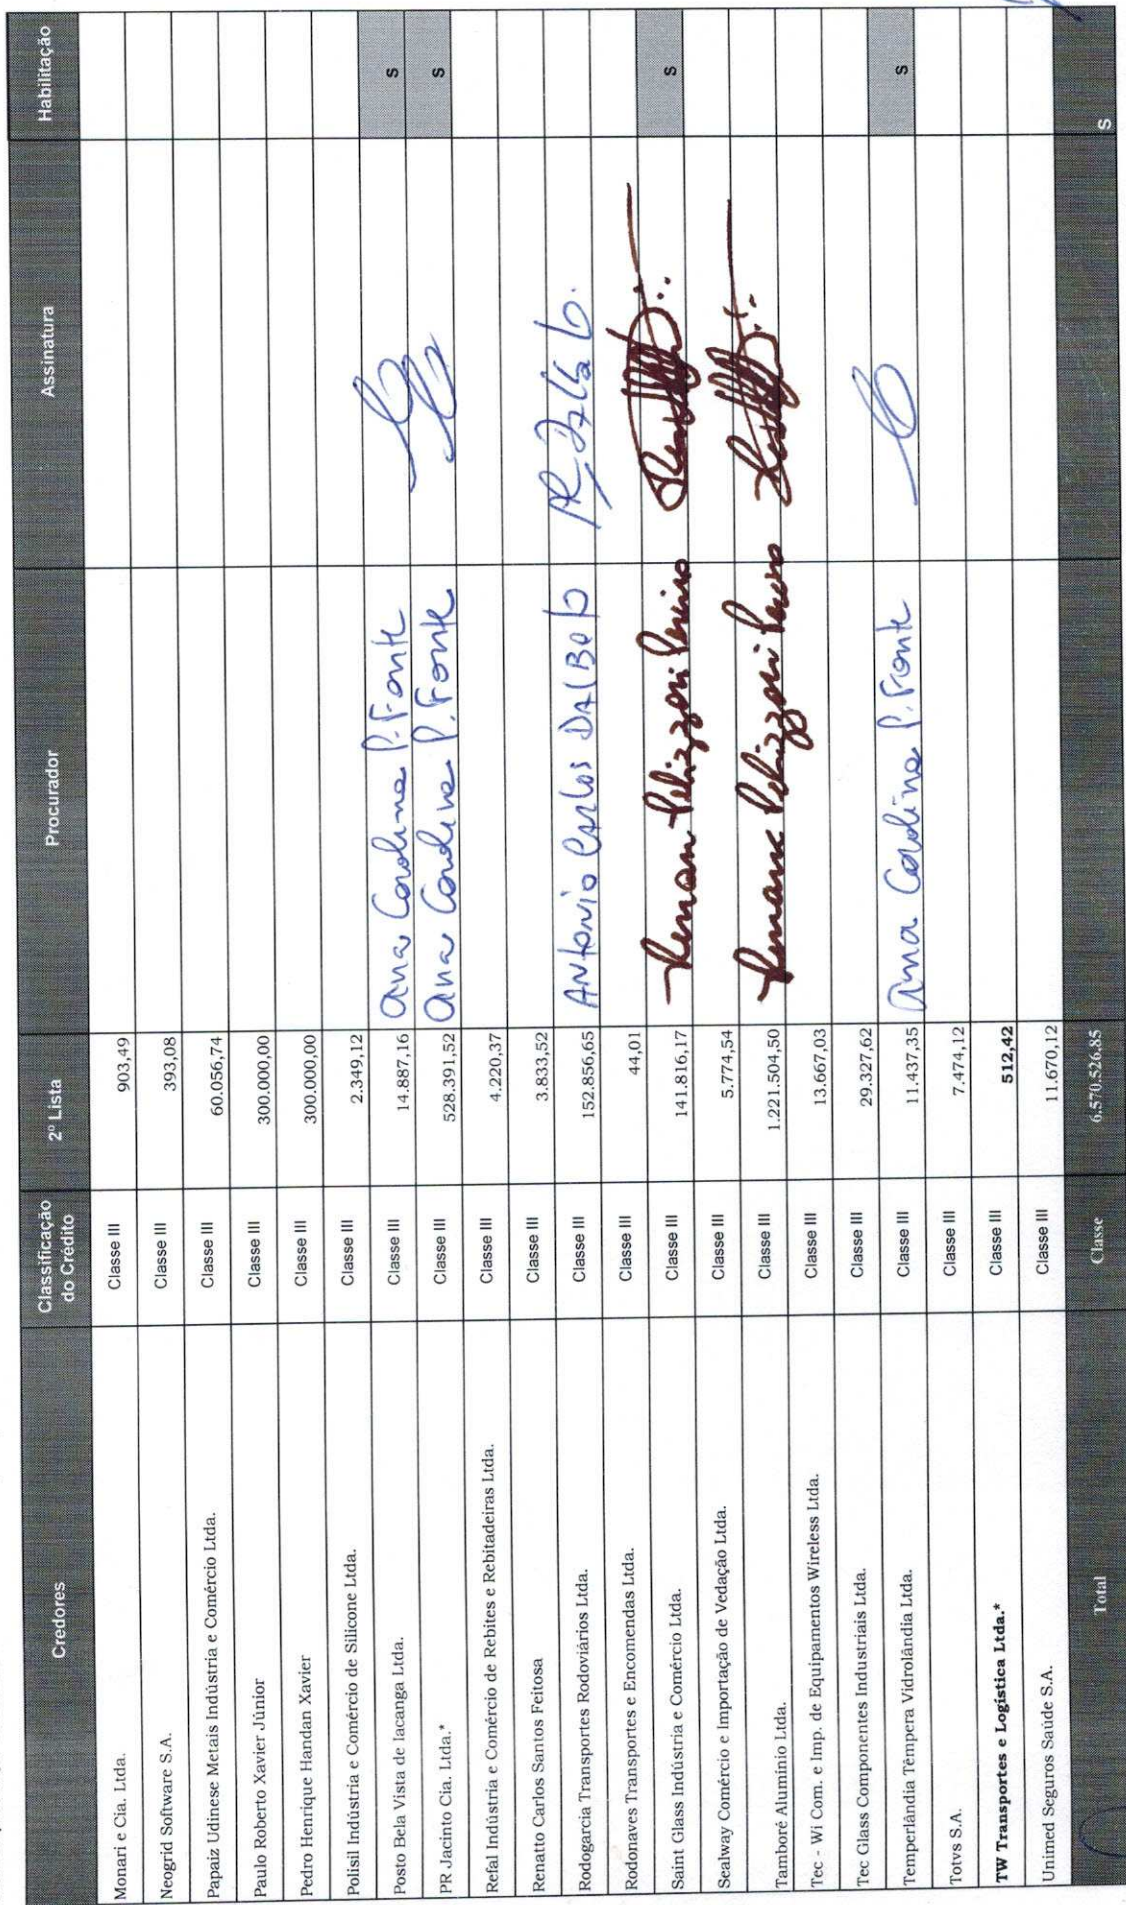 Credores Classificação do Crédito 2º Lista Procurador Assinatura Habilitação
Monari e Cia. Ltda. Classe III 903,49
Neogrid Software S.A. Classe III 393,08
Papaiz Udinese Metais Indústria e Comércio Ltda. Classe III 60.056,74
Paulo Roberto Xavier Júnior Classe III 300.000,00
Pedro Henrique Handan Xavier Classe III 300.000,00
Polisil Indústria e Comércio de Silicone Ltda. Classe III 2.349,12
Posto Bela Vista de Iacanga Ltda. Classe III 14.887,16 Ana Carolina P. Fonte S
PR Jacinto Cia. Ltda.* Classe III 528.391,52 Ana Carolina P. Fonte S
Refal Indústria e Comércio de Rebites e Rebitadeiras Ltda. Classe III 4.220,37
Renato Carlos Santos Feitosa Classe III 3.833,52
Rodogarcia Transportes Rodoviários Ltda. Classe III 152.856,65 Antonio Carlos
Rodonaves Transportes e Encomendas Ltda. Classe III 44,01
Saint Glass Indústria e Comércio Ltda. Classe III 141.816,17 S
Sealway Comércio e Importação de Vedação Ltda. Classe III 5.774,54
Tamboré Aluminio Ltda. Classe III 1.221.504,50
Tec - Wi Com. e Imp. de Equipamentos Wireless Ltda. Classe III 13.667,03
Tec Glass Componentes Industriais Ltda. Classe III 29.327,62
Temperlândia Têmpera Vidrolândia Ltda. Classe III 11.437,35 Ana Carolina P. Fonte S
Totvs S.A. Classe III 7.474,12
TW Transportes e Logística Ltda.* Classe III 512,42
Unimed Seguros Saúde S.A. Classe III 11.670,12
Total Classe 6.570.526,85 S